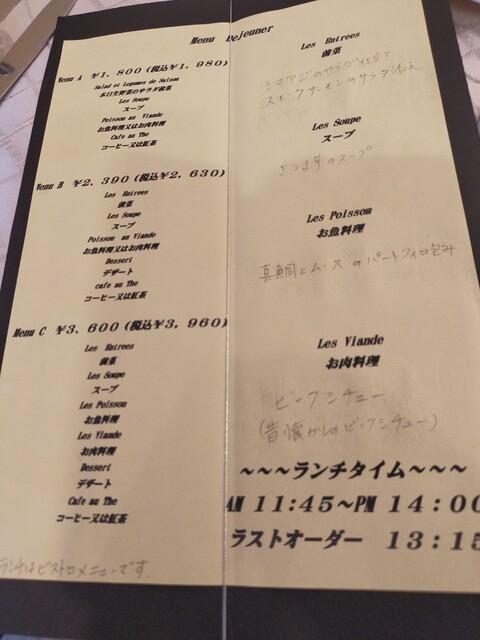 Menu Dejeuner
Menu A ¥1,800(税込¥1,980)
Salad et Legumes de Saison
本日生野菜のサラダ前菜
Les Soupe
スープ
Poisson au Viande
お魚料理又はお肉料理
Cafe au The
コーヒー又は紅茶
Menu B ¥2,390(税込¥2,630)
Les Entrees
前菜
Les Soupe
スープ
Poisson au Viande
お魚料理又はお肉料理
Dessert
デザート
cafe au The
コーヒー又は紅茶
Menu C ¥3,600(税込¥3,960)
Les Entrees
前菜
Les Soupe
スープ
Les Poisson
お魚料理
Les Viande
お肉料理
Dessert
デザート
Cafe au The
コーヒー又は紅茶
ランチはビストロメニューです。
Les Entrees
前菜
シマアジのサラダ仕立と
スモークサーモンのサラダ添え
Les Soupe
スープ
さつま芋のスープ
Les Poisson
お魚料理
真鯛とムースのパートフィロ包み
Les Viande
お肉料理
ビーフシチュー
(昔懐かしのビーフシチュー)
~~~ランチタイム~~~
AM 11:45~PM 14:00
ラストオーダー 13:15